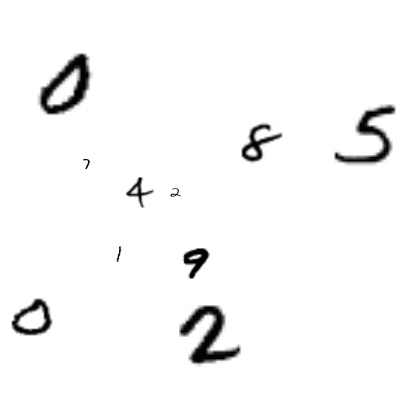 0
8 5
7
4 2
1 9
0 2